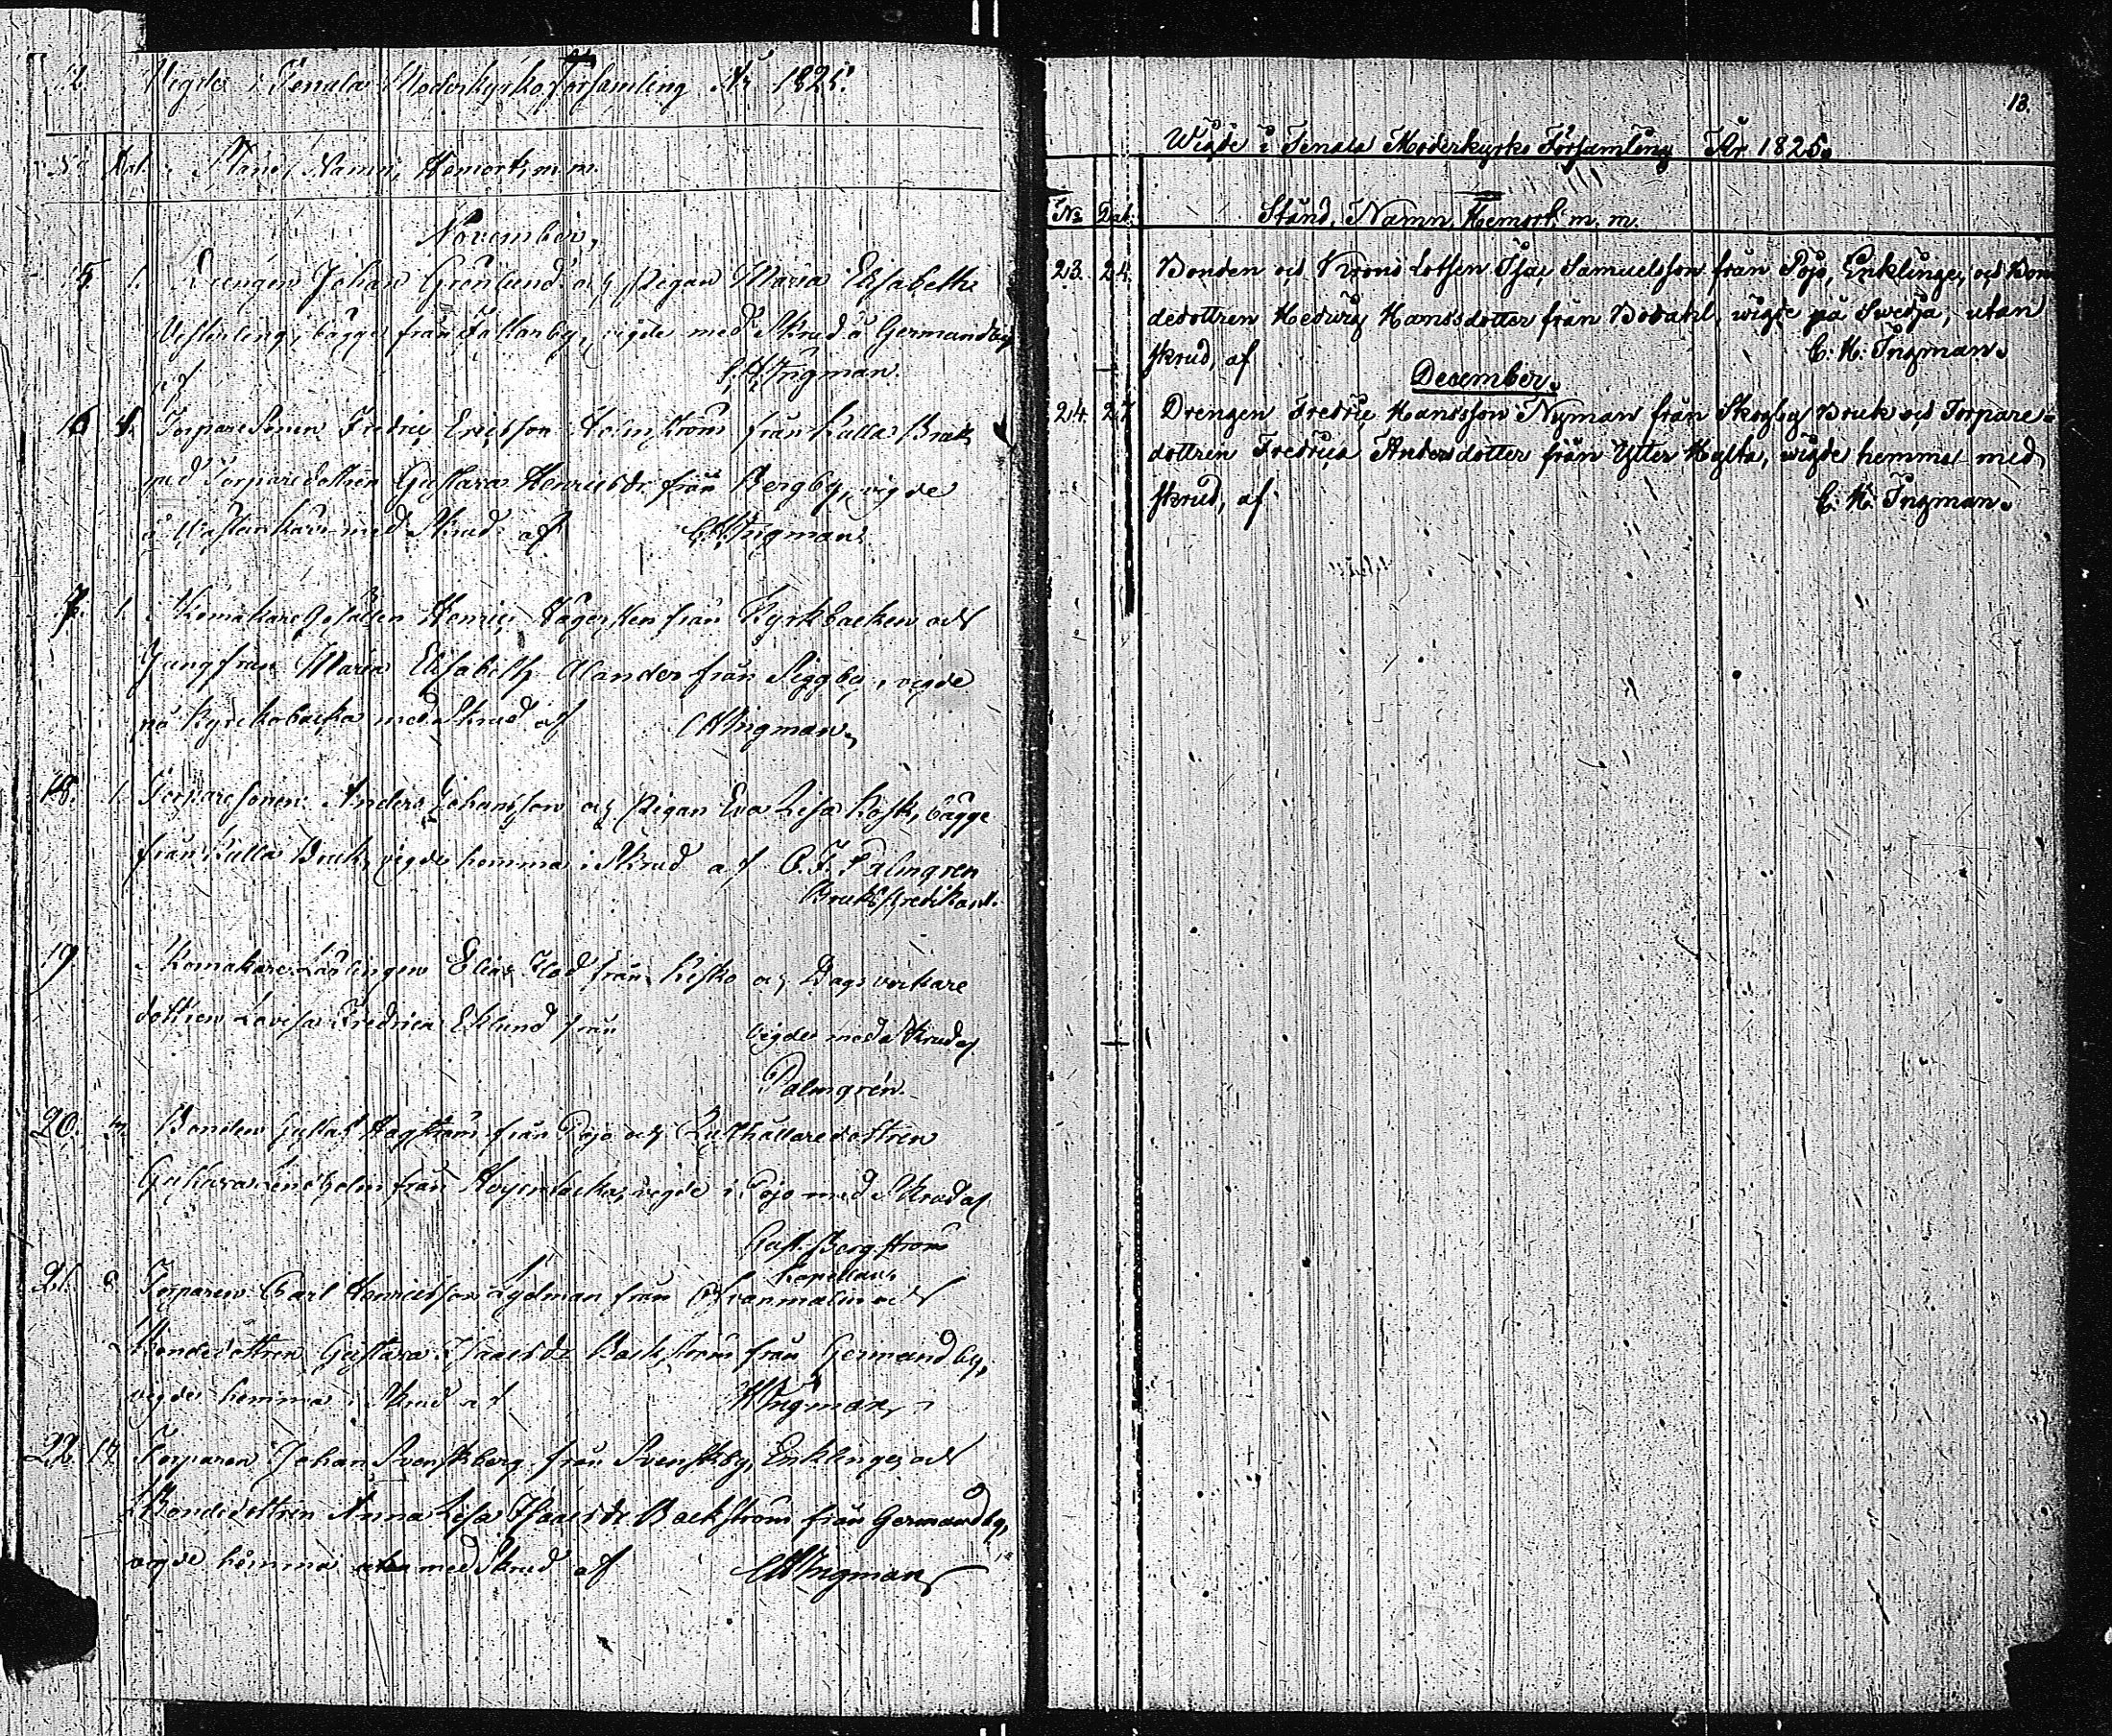 12. Vigde i Tenala Moderkyrko församling År 1825.
No Dat. Stånd, Namn, Hemort, m. m.
November,
15. 1. Drengen Johan Grönlund och Pigan Maria Elisabeth
Vesterling, bägge från Fallanby, vigde med Skrud å Germundby
af C. H. Ingman.
16. 1. Torpare Sonen Fredric Ericsson Holmström från Kulla Bruk
med Torparedottren Gustava Henricsdr från Bergby, vigde
å med Skrud af C. H. Ingman.
17. 1. Skomakare Gesällen Henric Hägersten från Kyrkbacken och
Jungfrun Maria Elisabeth Alander från Siggby, vigde
på Kyrckobacka med Skrud af C H Ingman.
18. 1. Torparesonen Anders Johansson och Pigan Eva Lisa Rosk, bägge
från Kulla Bruk, vigde hemma i Skrud af C. F. Palmgren
Bruks Predikant.
19. Skomakare Lärlingen Elias Flod från Kisko och Dagsverkare
dottren Lovisa Fredrica Eklund från vigde med Skrud af
Palmgren.
20. Bonden Gustaf Hagström från Pojo och Rusthållaredottren
Gustava Lindholm från vigde i Pojo med Skrud af
Gust. Bergström
Kapellan.
21. 8. Torparen Carl Henricsson Lydman från och
Bondedottren Gustava Isaacsdr Backström från Germundby,
vigde hemma i Skrud af C H Ingman
22. 14. Torparen Johan Svenskberg från Svenskby, Enkling, och
Bondedottren Anna Lisa Isaacsdr Backström från Germundby,
vigde hemma med Skrud af C H Ingman
13.
Wigde i Tenala Moderkyrko Församling År 1825.
No Dat. Stånd, Namn, Hemort m. m.
23. 24. Bonden och Krono Lotsen Isac Samuelsson från Pojo, Enklinge, och Bon-
dedottren Hedwig Hansdotter från Bodahl, wigde på Swedja, utan
skrud, af C. H. Ingman.
December.
24. 27 Drengen Fredric Hansson Nyman från Skogby Bruk och Torpare-
dottren Fredrica Andersdotter från Ytter Hylta, wigde hemma med
skrud, af C. H. Ingman.